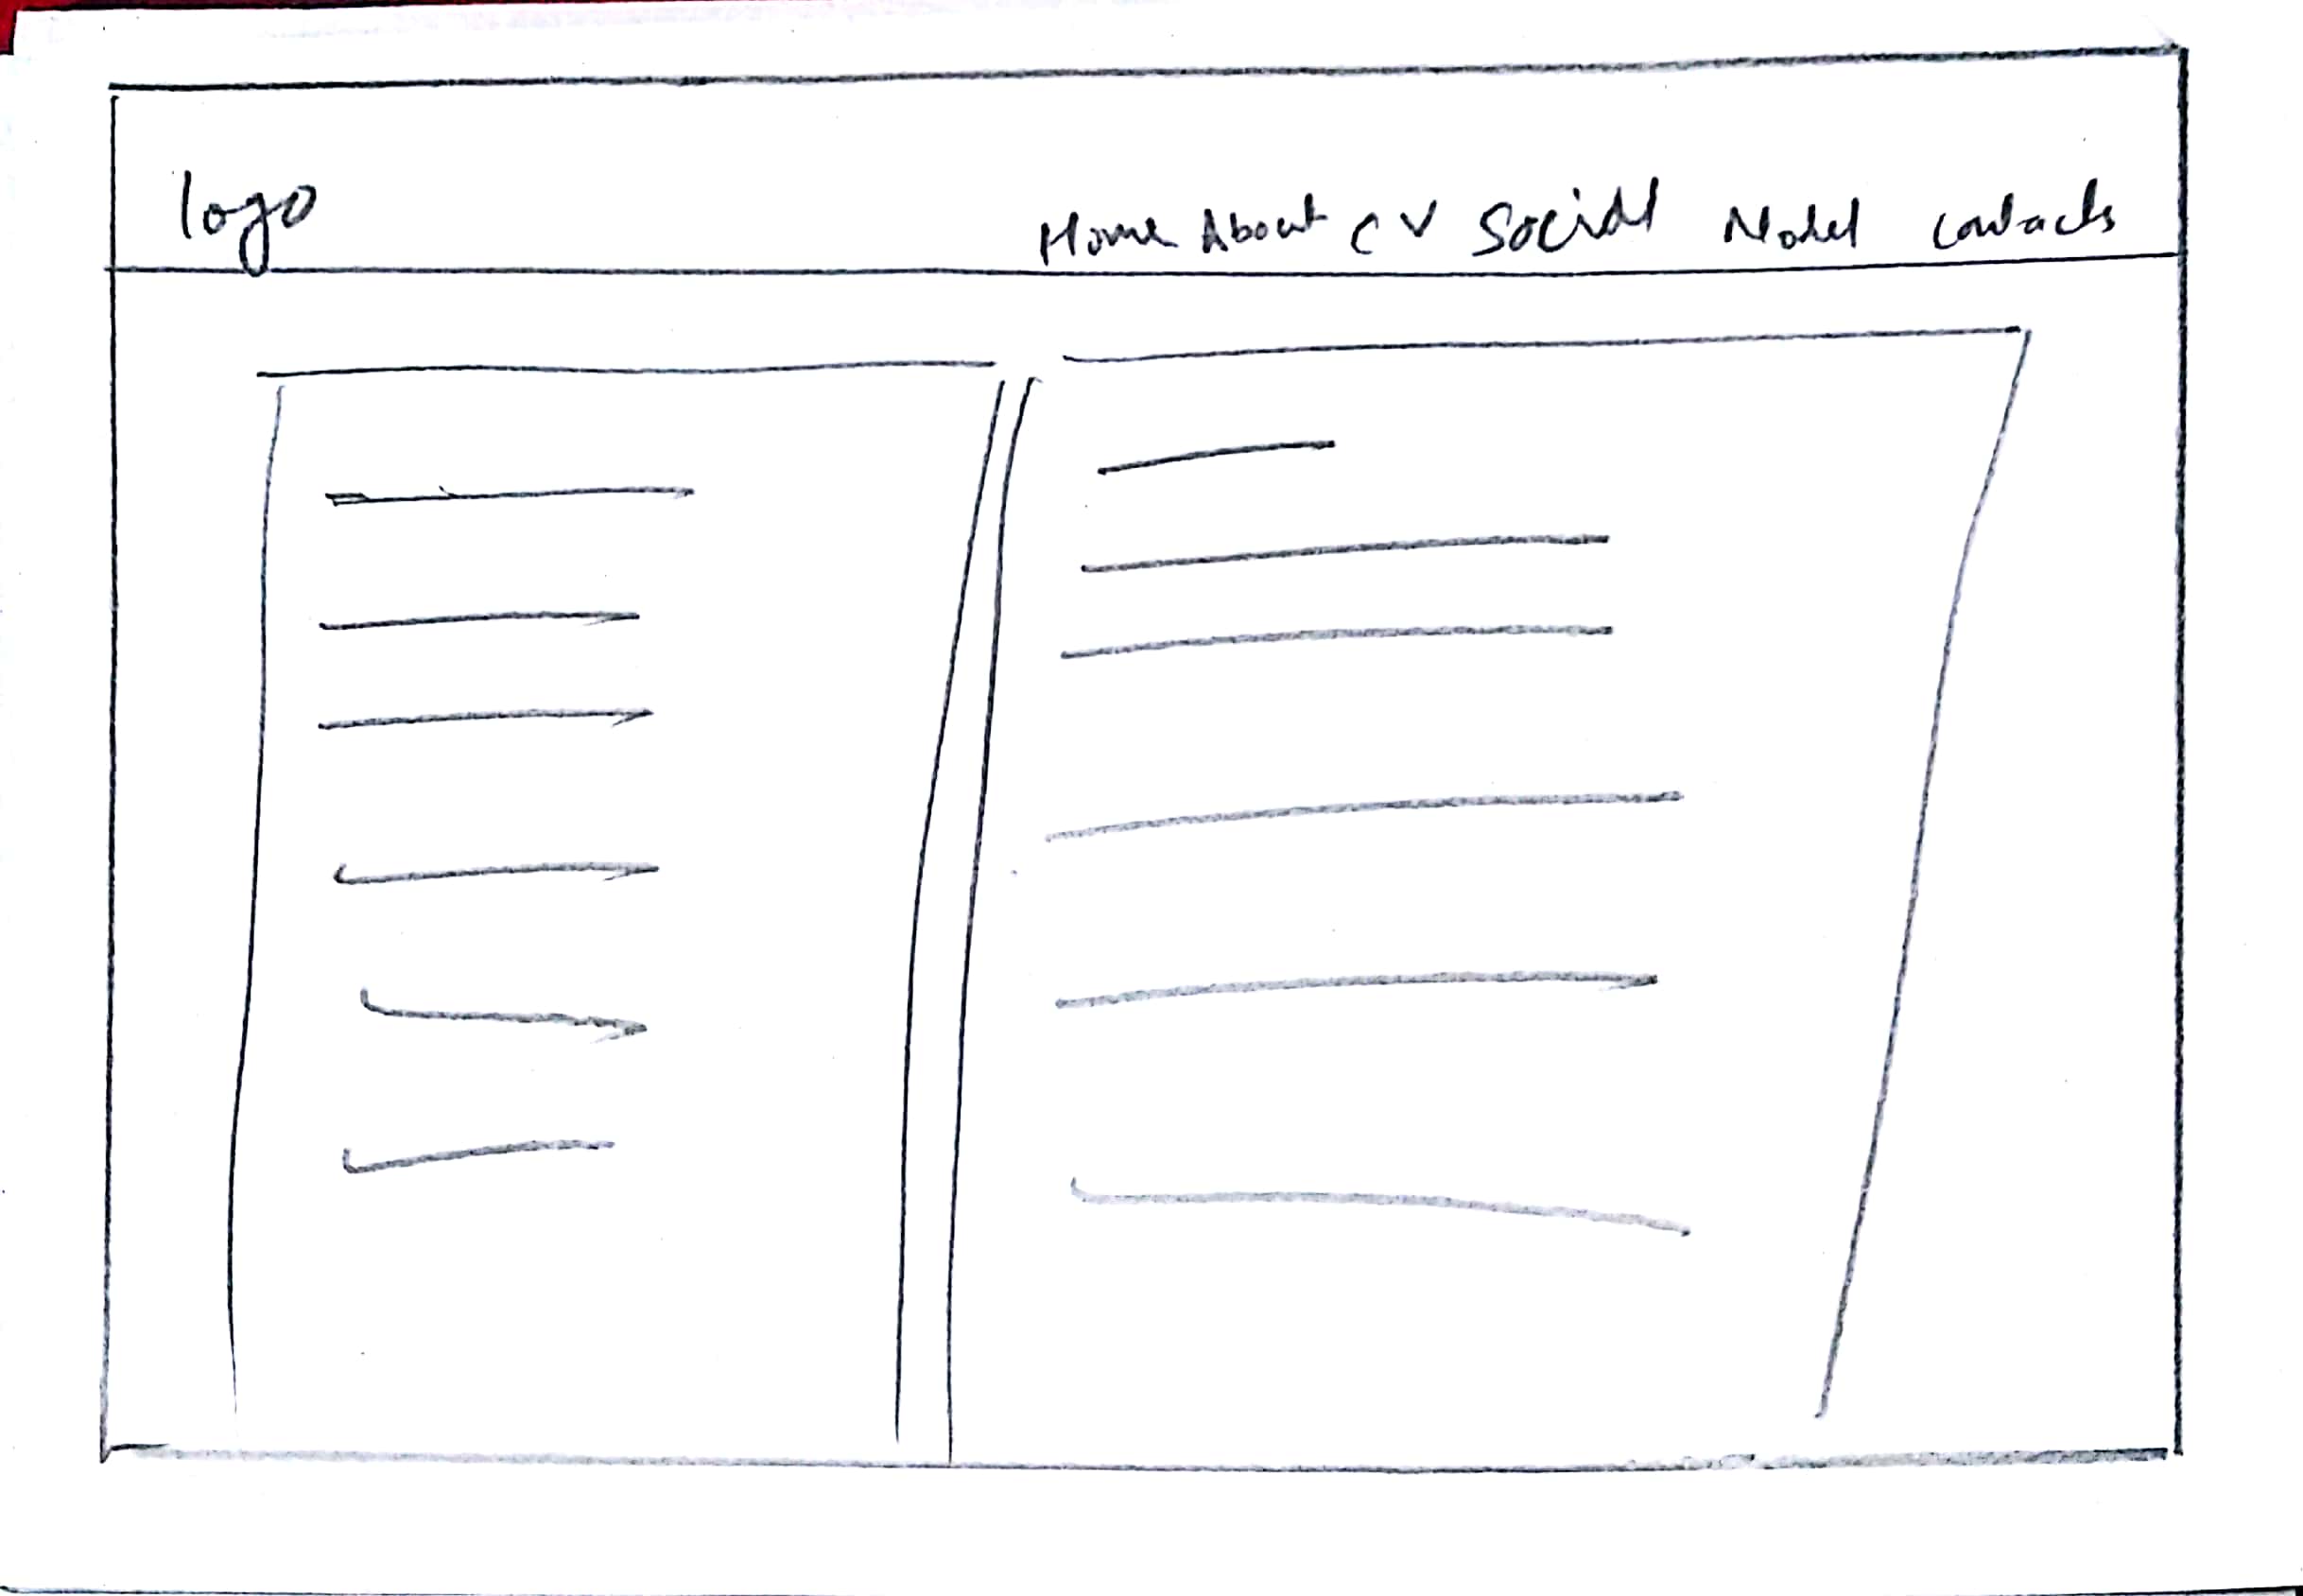 logo
Home About CV Social Model Contacts